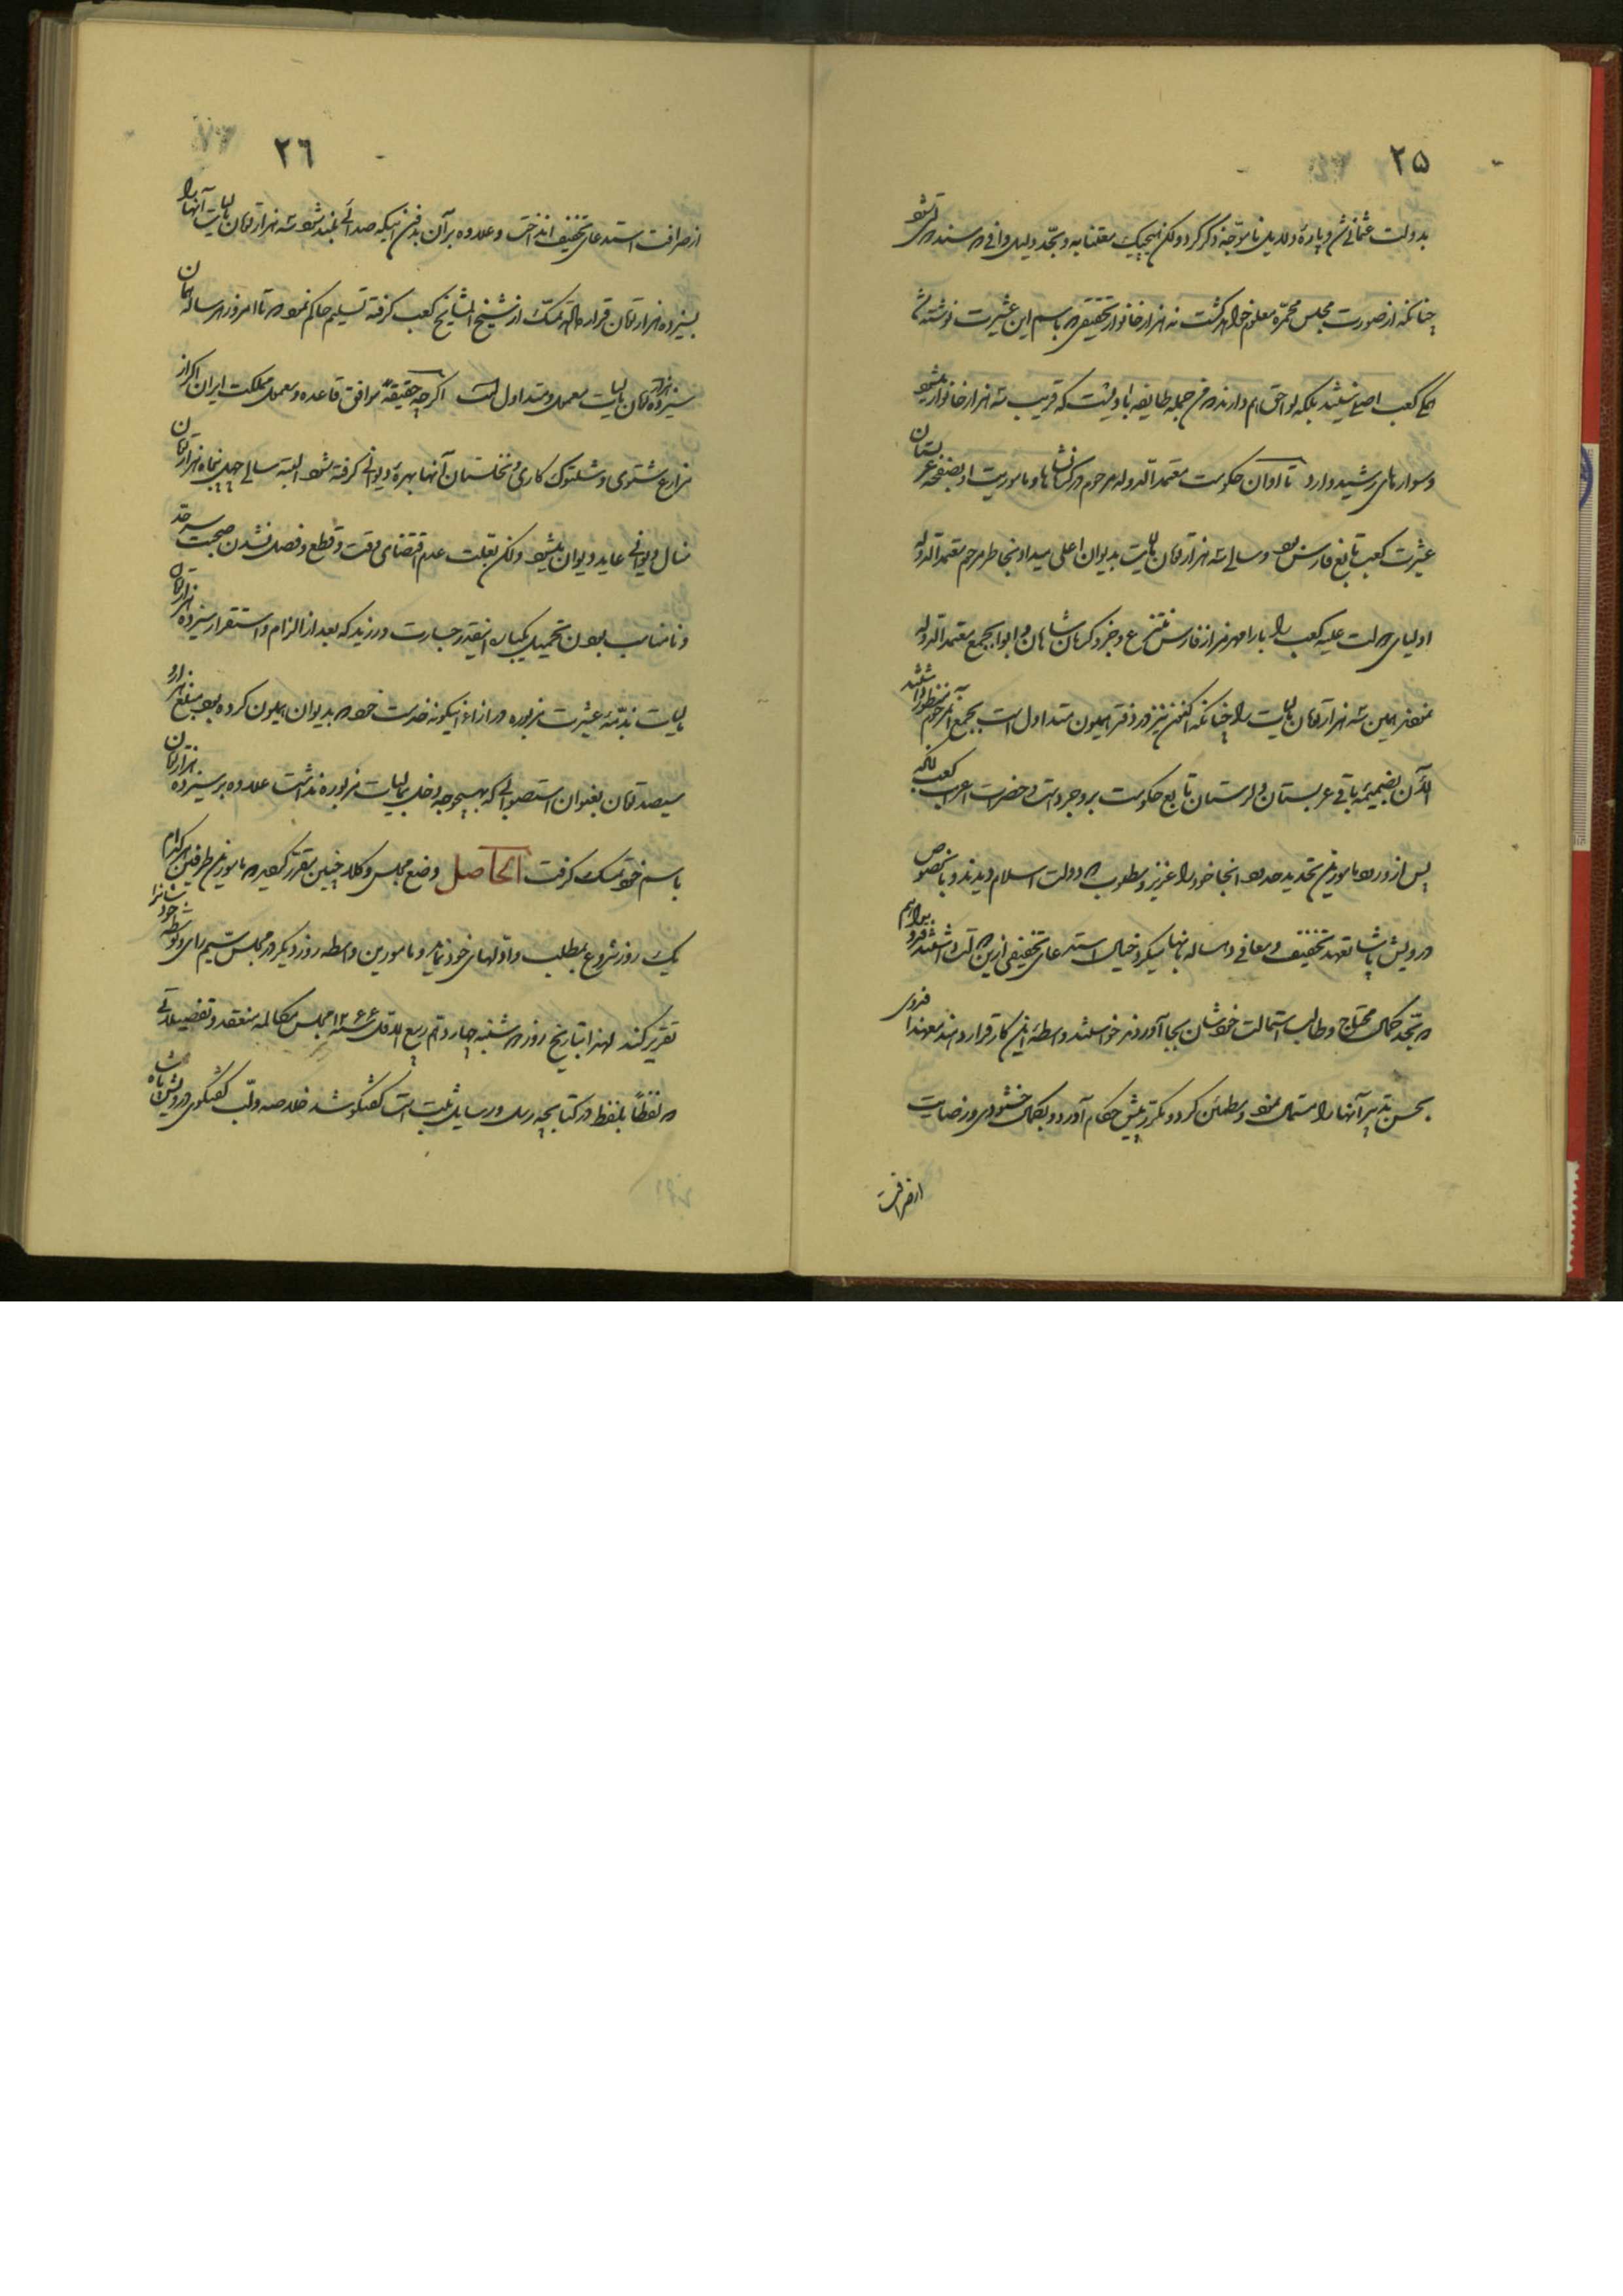 ۲۵
بدولت عثمانی شد و پارهٔ دلایل ناموجّه ذکر کرد ولکن هیچیک معتنابه و بجّد دلیل وافی و سند قوی نشد
چنانکه از صورت مجلس محمّره معلوم خواهد گشت نه هزار خانوار تحقیقی که باسم این عشیرت نوشته شد
همه کعب اصلی نیستند بلکه لواحق هم دارند و من جمله طایفه باویست که قریب سه هزار خانوار میشود
و سوارهای رشید دارد تا اوان حکومت معتمد الدّوله مرحوم در کرمانشاهان و ماموریت او بصفحهٔ عربستان
عشیرت کعب تابع فارس بود و سالی سه هزار تومان مالیات بدیوان اعلی میداد بخاطر مرحوم معتمد الدّوله
اولیای دولت علیه کعب را با رامهرمز از فارس منتزع و جزو کرمانشاهان و ابوابجمع معتمد الدّوله
نمودند همین سه هزار تومان مالیات را چنانکه اکنون نیز در دفتر همیون متداول است بجمع آنمرحوم منظور داشتند
الآن بضمیمهٔ باقی عربستان و لرستان تابع حکومت بروجرد است و حضرت اعراب کعب مادامکه
پس از ورود مامورین تحدید حدود بآنجا خود را عزیز و مطلوب دو دولت اسلام دیدند و بالخصوص
درویش پاشا تعهد تخفیف و معافی ده ساله بآنها میکرد خیال استدعای تخفیفی ازین دولت داشتند فرد براهم
در تجد کمال محتاج و طالب استمالت خودشان بجا آوردند خواستند واسطهٔ این کار قرار دهند معهذا فدوی
بحسن تدبیر آنها را مستمال نمود و مطمئن کرد و بکمتر و پیش حکام آورد و بکمال خشنودی و رضایت
از صرافت
۲٦
از صرافت استدعای تخفیف انداخت و علاوه بر آن بدون اینکه صدائی بلند شود سه هزار تومان مالیات آنها را
بسیزده هزار تومان قرار داده تمسّک از شیخ المشایخ کعب گرفته تسلیم حاکم نمود و تا امروز هر ساله همان
سیزده هزار تومان مالیات معمول و متداول است اگر چه حقیقةً موافق قاعده و معمول مملکت ایران اگر از
مزارع شتوی و شلتوک کاری و نخلستان آنها بهرهٔ دیوانی گرفته شود البته سالی چهل پنجاه هزار تومان
منال دیوانی عاید دیوان میشود ولکن بعلّت عدم اقتضای وقت و قطع و فصل نشدن صحبت سرحدّ
و نامناسب بودن تحمیل یکباره اینقدر جسارت ورزید که بعد از الزام و استقرار سیزده هزار تومان
مالیات بذمّهٔ عشیرت مزبوره در ازاء اینگونه خدمت خود که بدیوان همیون کرده بود مبلغ هزار و
سیصد تومان بعنوان استصوابی که بهیچوجه دخلی بمالیات مزبوره نداشت علاوه بر سیزده هزار تومان
باسم خود تمسک گرفت الحاصل وضع مجلس وکلا چنین مقرر گردید که مامورین طرفین هر کدام
یک روز شروع بمطلب و ادّلهای خود نمایند و مامورین واسطه روز دیگر در مجلس سیم رای و توسطه خودشانرا
تقریر کنند لهذا بتاریخ روز دوشنبه چهاردهم ربیع الاول سنه ۱۲۶۶ مجلس مکالمه منعقد و تفصیلاتی
که لفظاً بلفظ در کتابچه رسل و رسایل ثبت است گفتگو شد خلاصه و لبّ گفتگوی درویش پاشا